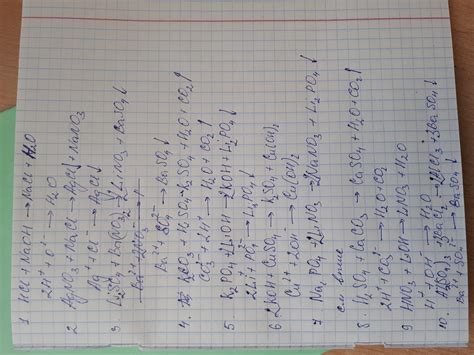 1 HCl + NaOH → NaCl + H₂O
2H⁺ + O²⁻ → H₂O
2 AgNO₃ + NaCl → AgCl↓ + NaNO₃
Ag⁺ + Cl⁻ → AgCl↓
3. Li₂SO₄ + Ba(NO₃)₂ → 2LiNO₃ + BaSO₄↓
Ba²⁺ + SO₄²⁻ → BaSO₄↓
4. K₂CO₃ + H₂SO₄ → K₂SO₄ + H₂O + CO₂↑
CO₃²⁻ + 2H⁺ → H₂O + CO₂↑
5. K₃PO₄ + 3LiOH → 3KOH + Li₃PO₄↓
3Li⁺ + PO₄³⁻ → Li₃PO₄↓
6 2KOH + CuSO₄ → K₂SO₄ + Cu(OH)₂
Cu²⁺ + 2OH⁻ → Cu(OH)₂
7 Na₃PO₄ + 3LiNO₃ → 3NaNO₃ + Li₃PO₄↓
см выше
8. H₂SO₄ + CaCO₃ → CaSO₄ + H₂O + CO₂↑
2H⁺ + CO₃²⁻ → H₂O + CO₂
9 HNO₃ + LiOH → LiNO₃ + H₂O
H⁺ + OH⁻ → H₂O
10.
Ba²⁺ + SO₄²⁻ → BaSO₄↓